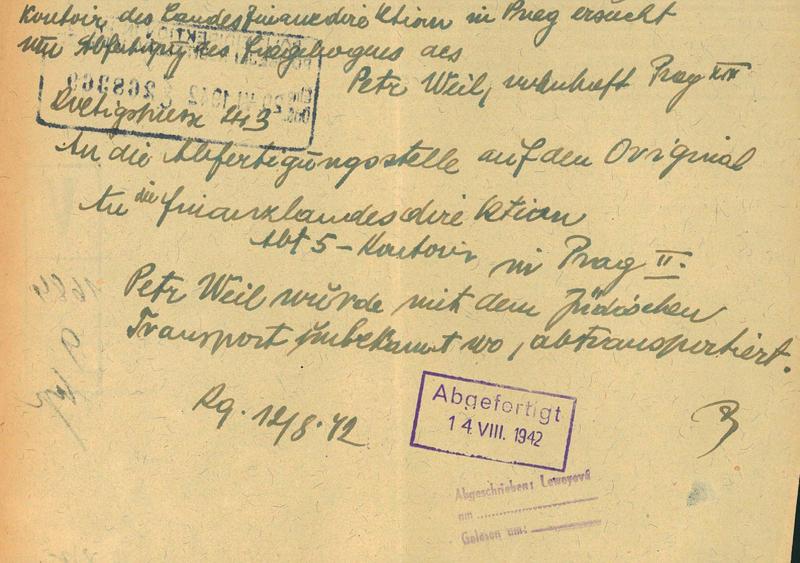 Kontoir des Landesfinanzdirektion in Prag ersucht
um Abfertigung des des
Petr Weil, wohnhaft Prag XIX
43
An die Abfertigungsstelle auf den Original
An die Finanzlandesdirektion
Abt 5 - Kontoir in Prag II.
Petr Weil wurde mit dem Jüdischen
Transport unbekannt wo, abtransportiert.
Pg. 12/8.42
Abgefertigt
14. VIII. 1942
Abgeschrieben: Laweyová
am
Gelesen am: